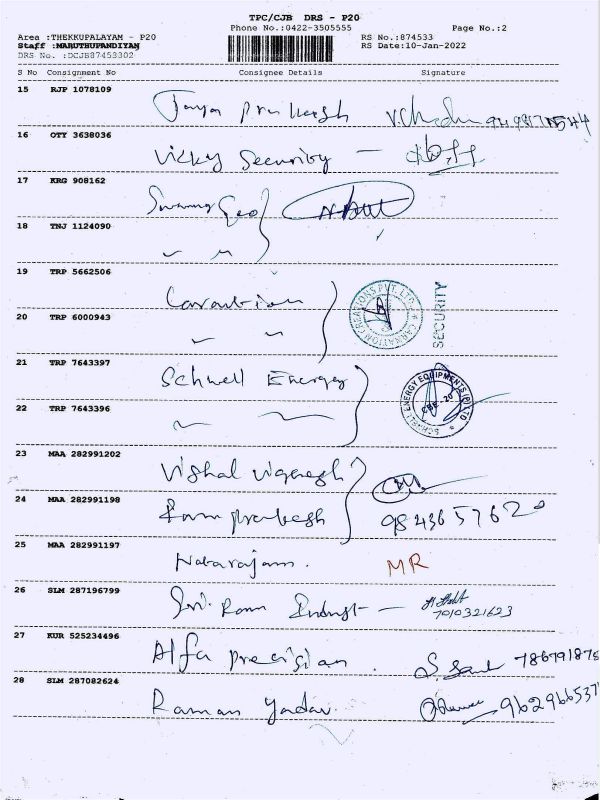 TPC/CJB DRS - P20
Phone No.:0422-3505555 Page No.:2
Area :THEKKUPALAYAM - P20 RS No.:874533
Staff :MARUTHUPANDIYAN RS Date:10-Jan-2022
DRS No. :DCJB87453302
S No Consignment No Consignee Details Signature
15 RJP 1078109
Jaya Prakash
16 OTY 3638036
Vicky Security
17 KRG 908162
18 TNJ 1124090
19 TRP 5662506
CARNATION CREATIONS PVT. LTD. SECURITY
20 TRP 6000943
21 TRP 7643397
Schwell Energy
SCHNELL ENERGY EQUIPMENTS (P) LTD CBE-20
22 TRP 7643396
23 MAA 282991202
Vishal Vignesh
24 MAA 282991198
Ram Prakash 9843657620
25 MAA 282991197
Natarajan. MR
26 SLM 287196799
Sri Ram Indust - 7010321623
27 KUR 525234496
Alfa Precision. 786791875
28 SLM 287082624
Raman Yadav 962966537